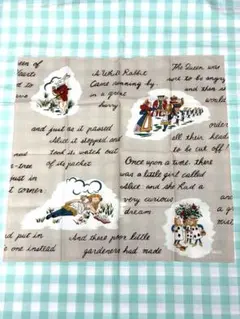 een of
Hearts
nt to
A White Rabbit
Came running by
in a great
hurry
The Queen was
sure to be angry
and then
world
order
all their heads
to be cut off!
and just as it passed
Alice it stopped and
took its watch out
of its pocket
e-tree
just in
t corner
Once upon a time, there
was a little girl called
Alice and she had a
very curious
dream
d put in
e one instead
And these poor little
gardeners had made